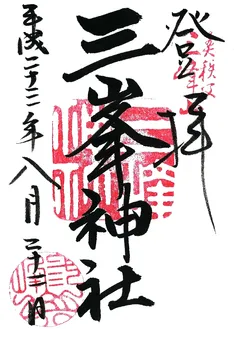 登拝
三峯神社
平成二十二年八月二十一日